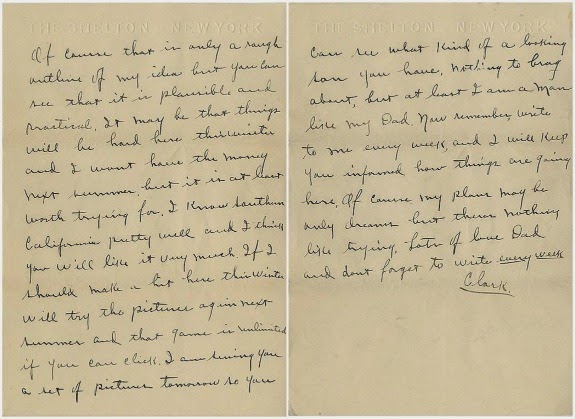 THE SHELTON NEW YORK
Of course that is only a rough
outline of my idea but you can
see that it is plausible and
practical. It may be that things
will be hard here this winter
and I wont have the money
next summer, but it is at least
worth trying for. I know southern
California pretty well and I think
you will like it very much. If I
should make a hit here this winter
will try the pictures again next
summer and that game is unlimited
if you can click. I am sending you
a set of pictures tomorrow so you
THE SHELTON NEW YORK
can see what kind of a looking
son you have, nothing to brag
about, but at least I am a man
like my Dad. Now remember, write
to me every week, and I will keep
you informed how things are going
here. Of course my plans may be
only dreams but theres nothing
like trying. Lots of love Dad
and dont forget to write every week
Clark.